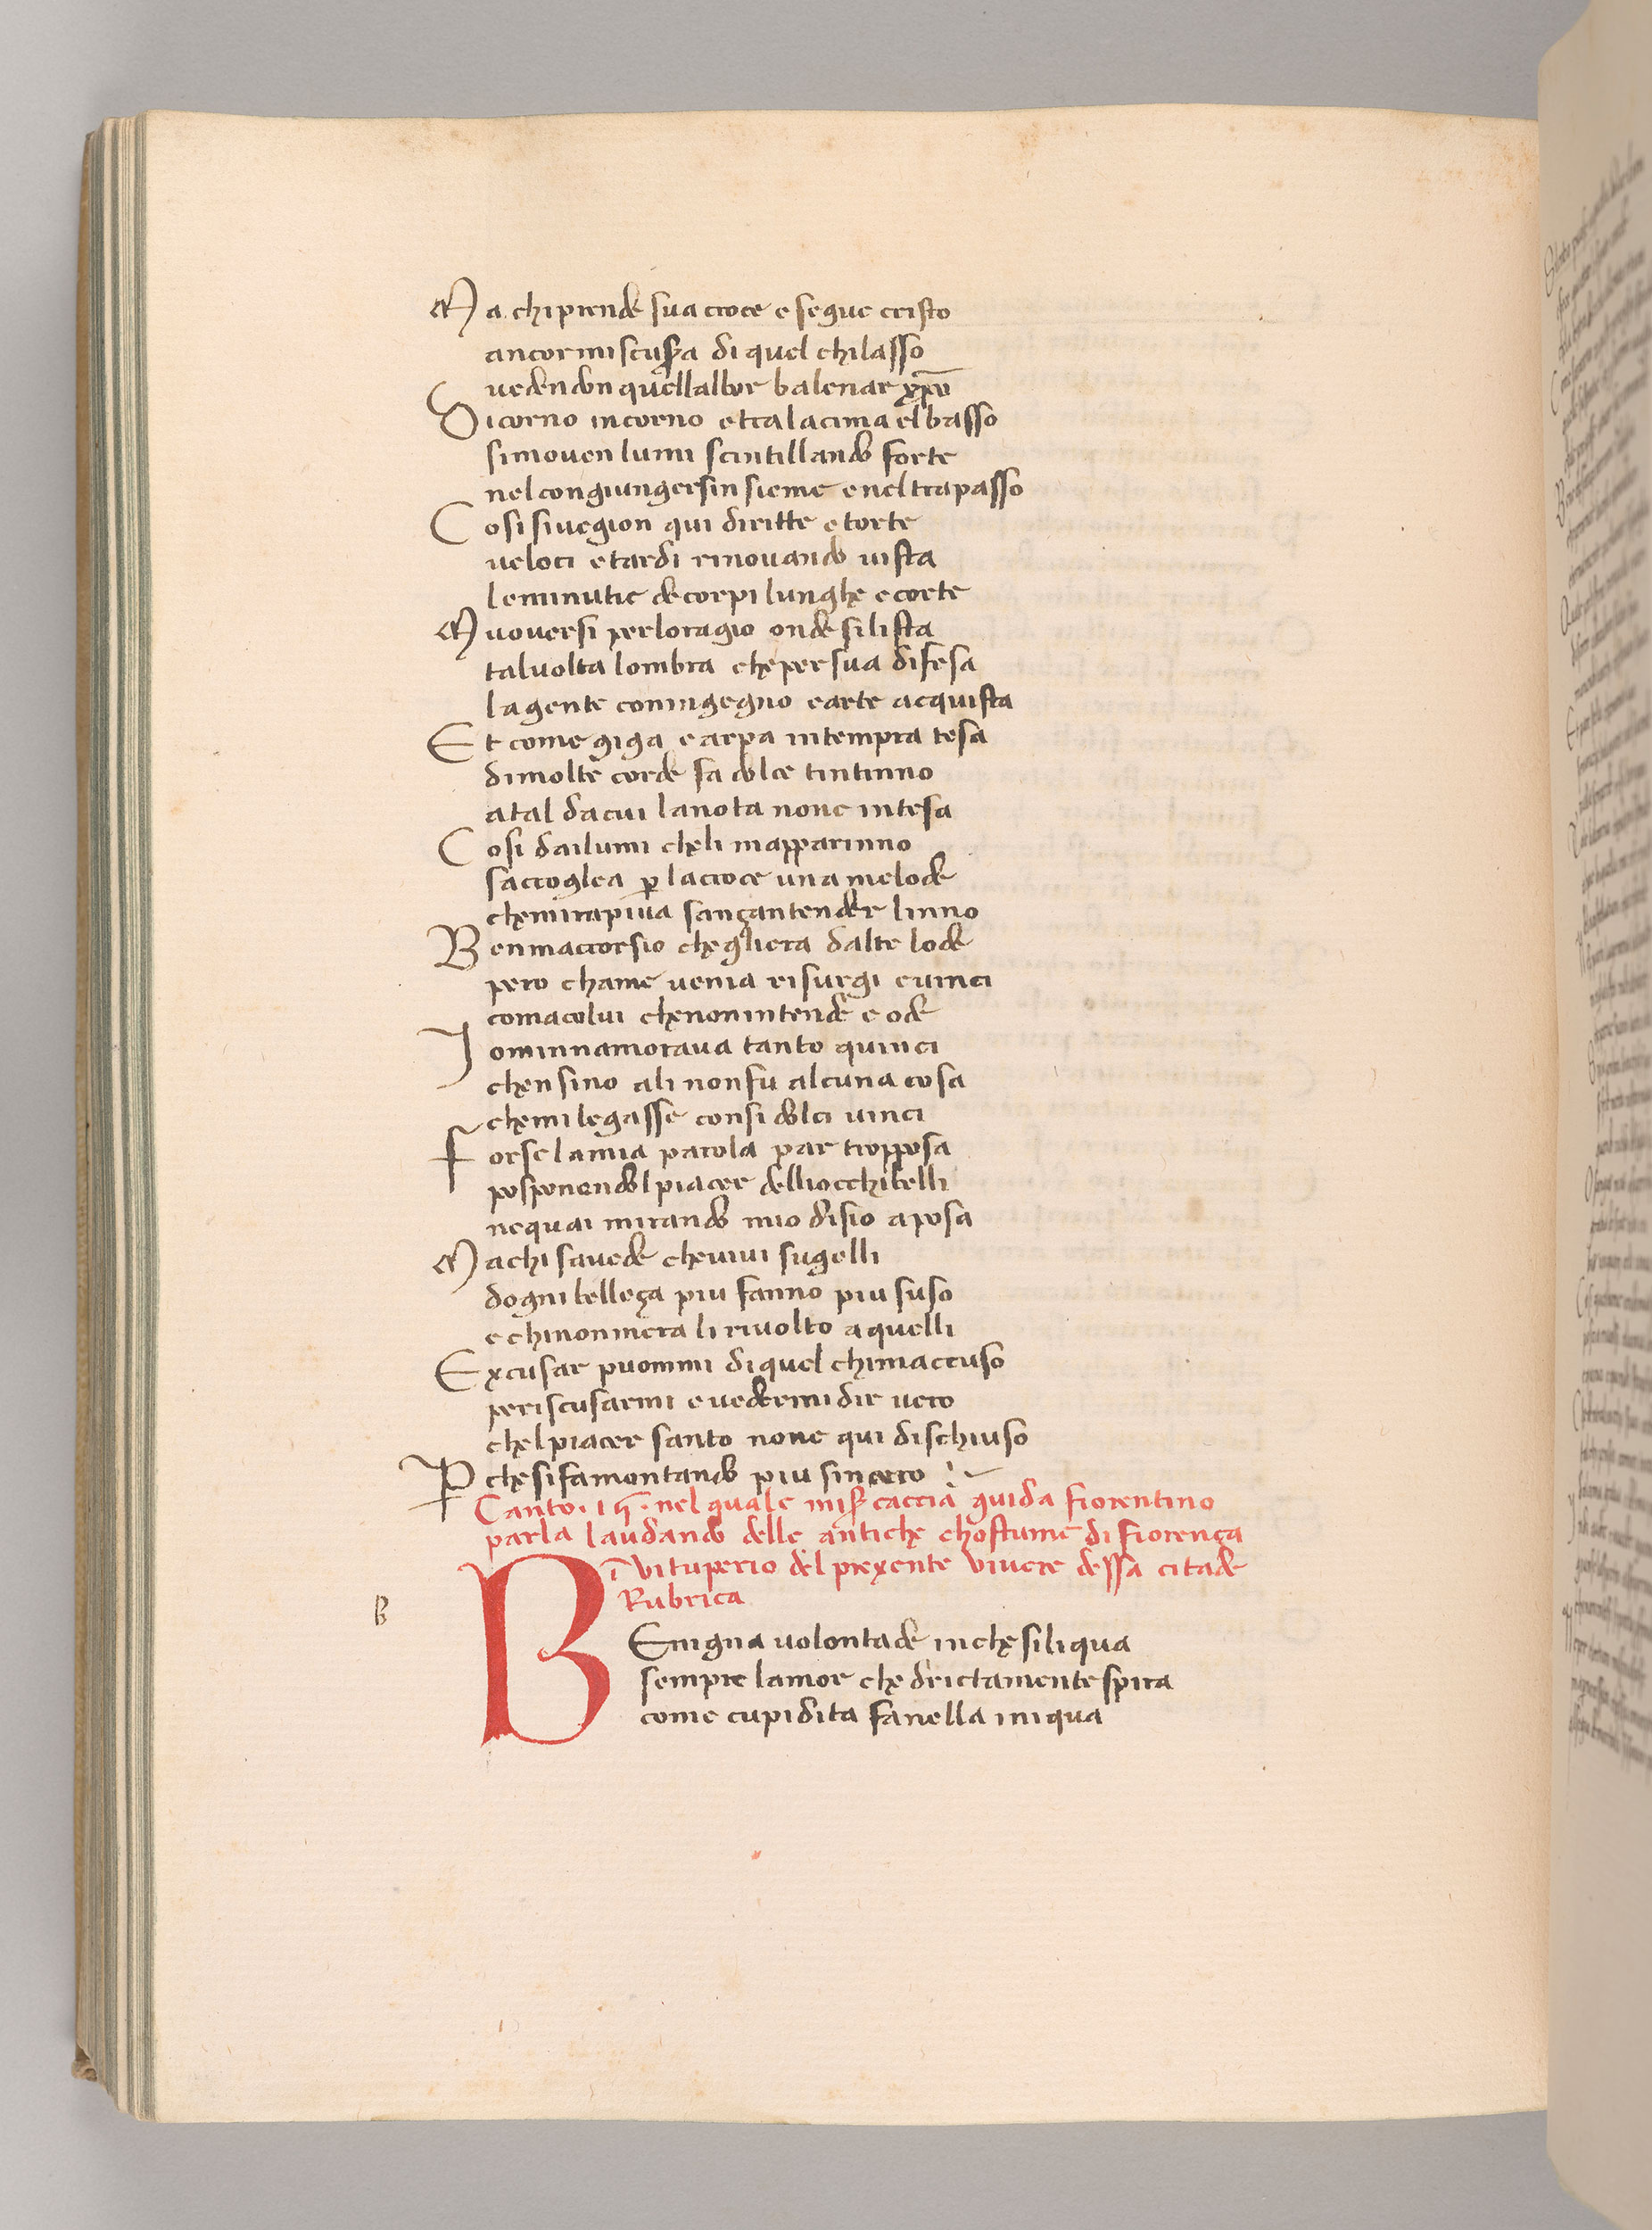 Ma chi prende sua croce e segue cristo
ancor mi scusera di quel chilasso
vedendon quellalbor balenar xpo
Di corno in corno e tra la cima el basso
si moven lumi scintillando forte
nel congiungersinsieme e nel trapasso
Cosi si vegion qui diritte e torte
veloci e tardi rinovando vista
le minutie de corpi lunghe e corte
Muoversi per lo ragio onde si lista
tal volta lombra che per sua difesa
la gente con ingegno e arte acquista
Et come giga e arpa in tempra tesa
di molte corde fa dolce tintinno
a tal da cui la nota none intesa
Cosi da i lumi che li mapparinno
saccoglea p la croce una melode
che mi rapiva sança ntender linno
Ben maccorsio che gliera dalte lode
pero chame venia risurgi e vinci
coma colui che non intende e ode
Io minnamorava tanto quinci
chen sino a li non fu alcuna cosa
che mi legasse con si dolci vinci
Forse la mia parola par tropposa
posponendol piacer delli occhi belli
ne quai mirando mio disio a posa
Ma chi savede che vivi sugelli
dogni belleça piu fanno piu suso
e chi non mera li rivolto a quelli
Excusar puommi di quel chimaccuso
per iscusarmi e vedermi dir vero
chel piacer santo none qui dischiuso
P che si fa montando piu sincero
Canto. 15. nel quale mis caccia guida fiorentino
parla laudando delle antiche chostume di fiorença
ī vituperio del prexente vivere dessa citade
Rubrica
B
BEnigna volontade in che si liqua
sempre lamor che drictamente spira
come cupidita fa nella iniqua